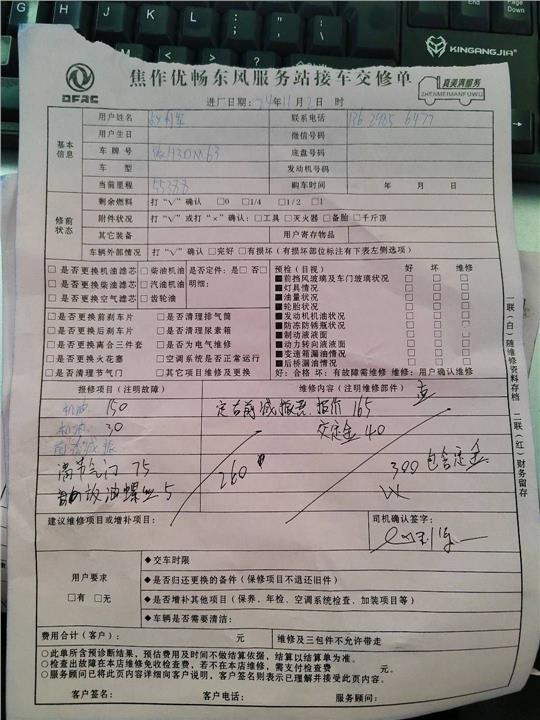 G H J K L
KINGANGJIA
DFAC
焦作优畅东风服务站接车交修单
真美满服务
ZHENMEIMANFUWU
进厂日期: 24年11月2日 时
基本信息
用户姓名 联系电话
用户生日 微信号码
车牌号 底盘号码
车型 发动机号码
当前里程 55388 购车时间 年 月 日
修前状态
剩余燃料 打“√”确认 □0 □1/4 □1/2 □1
附件状况 打“√”或打“×”确认: □工具 □灭火器 □备胎 □千斤顶
其它装备 用户寄存物品
车辆外部情况 打“√”确认 □完好 □有损坏 (有损坏部位标注有下表左侧选项)
□是否更换机油滤芯 □柴油机油 是否定件: 是□ 否□
□是否更换柴油滤芯 □汽油机油 明细:
□是否更换空气滤芯 □齿轮油
□是否更换前刹车片 □是否清理排气筒
□是否更换后刹车片 □是否清理尿素箱
□是否更换离合三件套 □是否为电气维修
□是否更换火花塞 □空调系统是否正常运行
□是否清理节气门 □其它项目维修及更换
预检 (目视) 好 坏 维修
■前挡风玻璃及车门玻璃状况 □ □ □
■灯具情况 □ □ □
■油量状况 □ □ □
■轮胎状况 □ □ □
■发动机机油状况 □ □ □
■防冻防锈瓶状况 □ □ □
■制动液液面 □ □ □
■动力转向液液面 □ □ □
■变速箱漏油情况 □ □ □
■后桥漏油情况 □ □ □
好: 合格 坏: 有故障需维修 维修: 用户确认维修
报修项目 (注明故障) 维修内容 (注明维修部件)
机油 150 定右前减振器 报价 165
机滤 30 交定金 40
前右减振
清节气门 75 260 300 包含定金
放油螺丝 5
建议维修项目或增补项目: 司机确认签字:
用户要求
□有 □无
◆交车时限
◆是否归还更换的备件 (保修项目不退还旧件)
◆是否增补其他项目 (保养、年检、空调系统检查、加装项目等)
◆车辆是否需要清洁:
费用合计 (客户): 元 维修及三包件不允许带走
○此单所含预诊断结果, 预估费用及时间不做结算依据, 结算以结算单为准。
○检查出故障在本店维修免收检查费, 若不在本店维修, 需支付检查费 元。
○服务顾问已将此页内容详细向客户说明, 客户签名则表示已理解并接受此页内容。
客户签名: 客户电话: 服务顾问:
一联(白)随维修资料存档 二联(红)财务留存